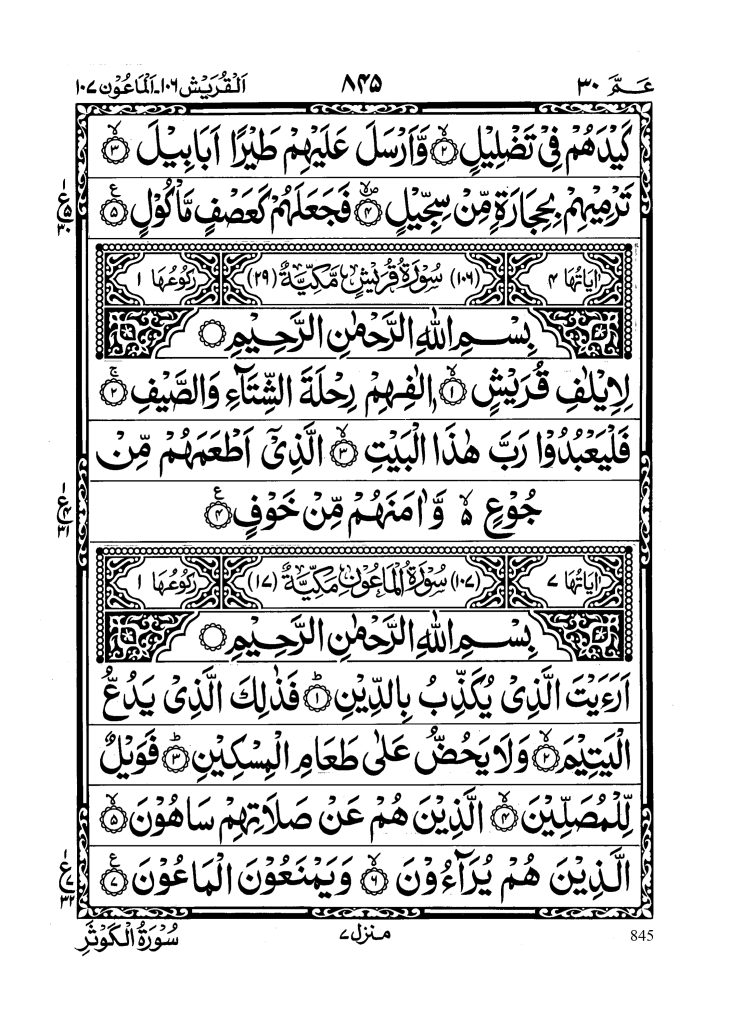 عَمَّ ۳۰ ۸۴۵ اَلْقُرَيْش ۱۰۶۔اَلْمَاعُوْن ۱۰۷
كَيْدَهُمْ فِيْ تَضْلِيْلٍ ۙ‏﴿۲﴾ وَّاَرْسَلَ عَلَيْهِمْ طَيْرًا اَبَابِيْلَ ۙ‏﴿۳﴾
تَرْمِيْهِمْ بِحِجَارَةٍ مِّنْ سِجِّيْلٍ ۙ‏﴿۴﴾ فَجَعَلَهُمْ كَعَصْفٍ مَّاْكُوْلٍ ‏﴿۵﴾
ع ۱ ۵ ۳۰
اٰيَاتُهَا ۴ (۱۰۶) سُوْرَةُ قُرَيْشٍ مَّكِّيَّةٌ (۲۹) رُكُوْعُهَا ۱
بِسْمِ اللهِ الرَّحْمٰنِ الرَّحِيْمِ
لِاِيْلٰفِ قُرَيْشٍ ۙ‏﴿۱﴾ اٖلٰفِهِمْ رِحْلَةَ الشِّتَآءِ وَالصَّيْفِ ۚ‏﴿۲﴾
فَلْيَعْبُدُوْا رَبَّ هٰذَا الْبَيْتِ ۙ‏﴿۳﴾ الَّذِيْۤ اَطْعَمَهُمْ مِّنْ
جُوْعٍ ۙ وَّاٰمَنَهُمْ مِّنْ خَوْفٍ ‏﴿۴﴾
ع ۱ ۴ ۳۱
اٰيَاتُهَا ۷ (۱۰۷) سُوْرَةُ الْمَاعُوْنِ مَكِّيَّةٌ (۱۷) رُكُوْعُهَا ۱
بِسْمِ اللهِ الرَّحْمٰنِ الرَّحِيْمِ
اَرَءَيْتَ الَّذِيْ يُكَذِّبُ بِالدِّيْنِ ؕ‏﴿۱﴾ فَذٰلِكَ الَّذِيْ يَدُعُّ
الْيَتِيْمَ ۙ‏﴿۲﴾ وَلَا يَحُضُّ عَلٰى طَعَامِ الْمِسْكِيْنِ ؕ‏﴿۳﴾ فَوَيْلٌ
لِّلْمُصَلِّيْنَ ۙ‏﴿۴﴾ الَّذِيْنَ هُمْ عَنْ صَلَاتِهِمْ سَاهُوْنَ ۙ‏﴿۵﴾
الَّذِيْنَ هُمْ يُرَآءُوْنَ ۙ‏﴿۶﴾ وَيَمْنَعُوْنَ الْمَاعُوْنَ ‏﴿۷﴾
ع ۱ ۷ ۳۲
845 منزل۷ سُوْرَةُ الْكَوْثَرِ